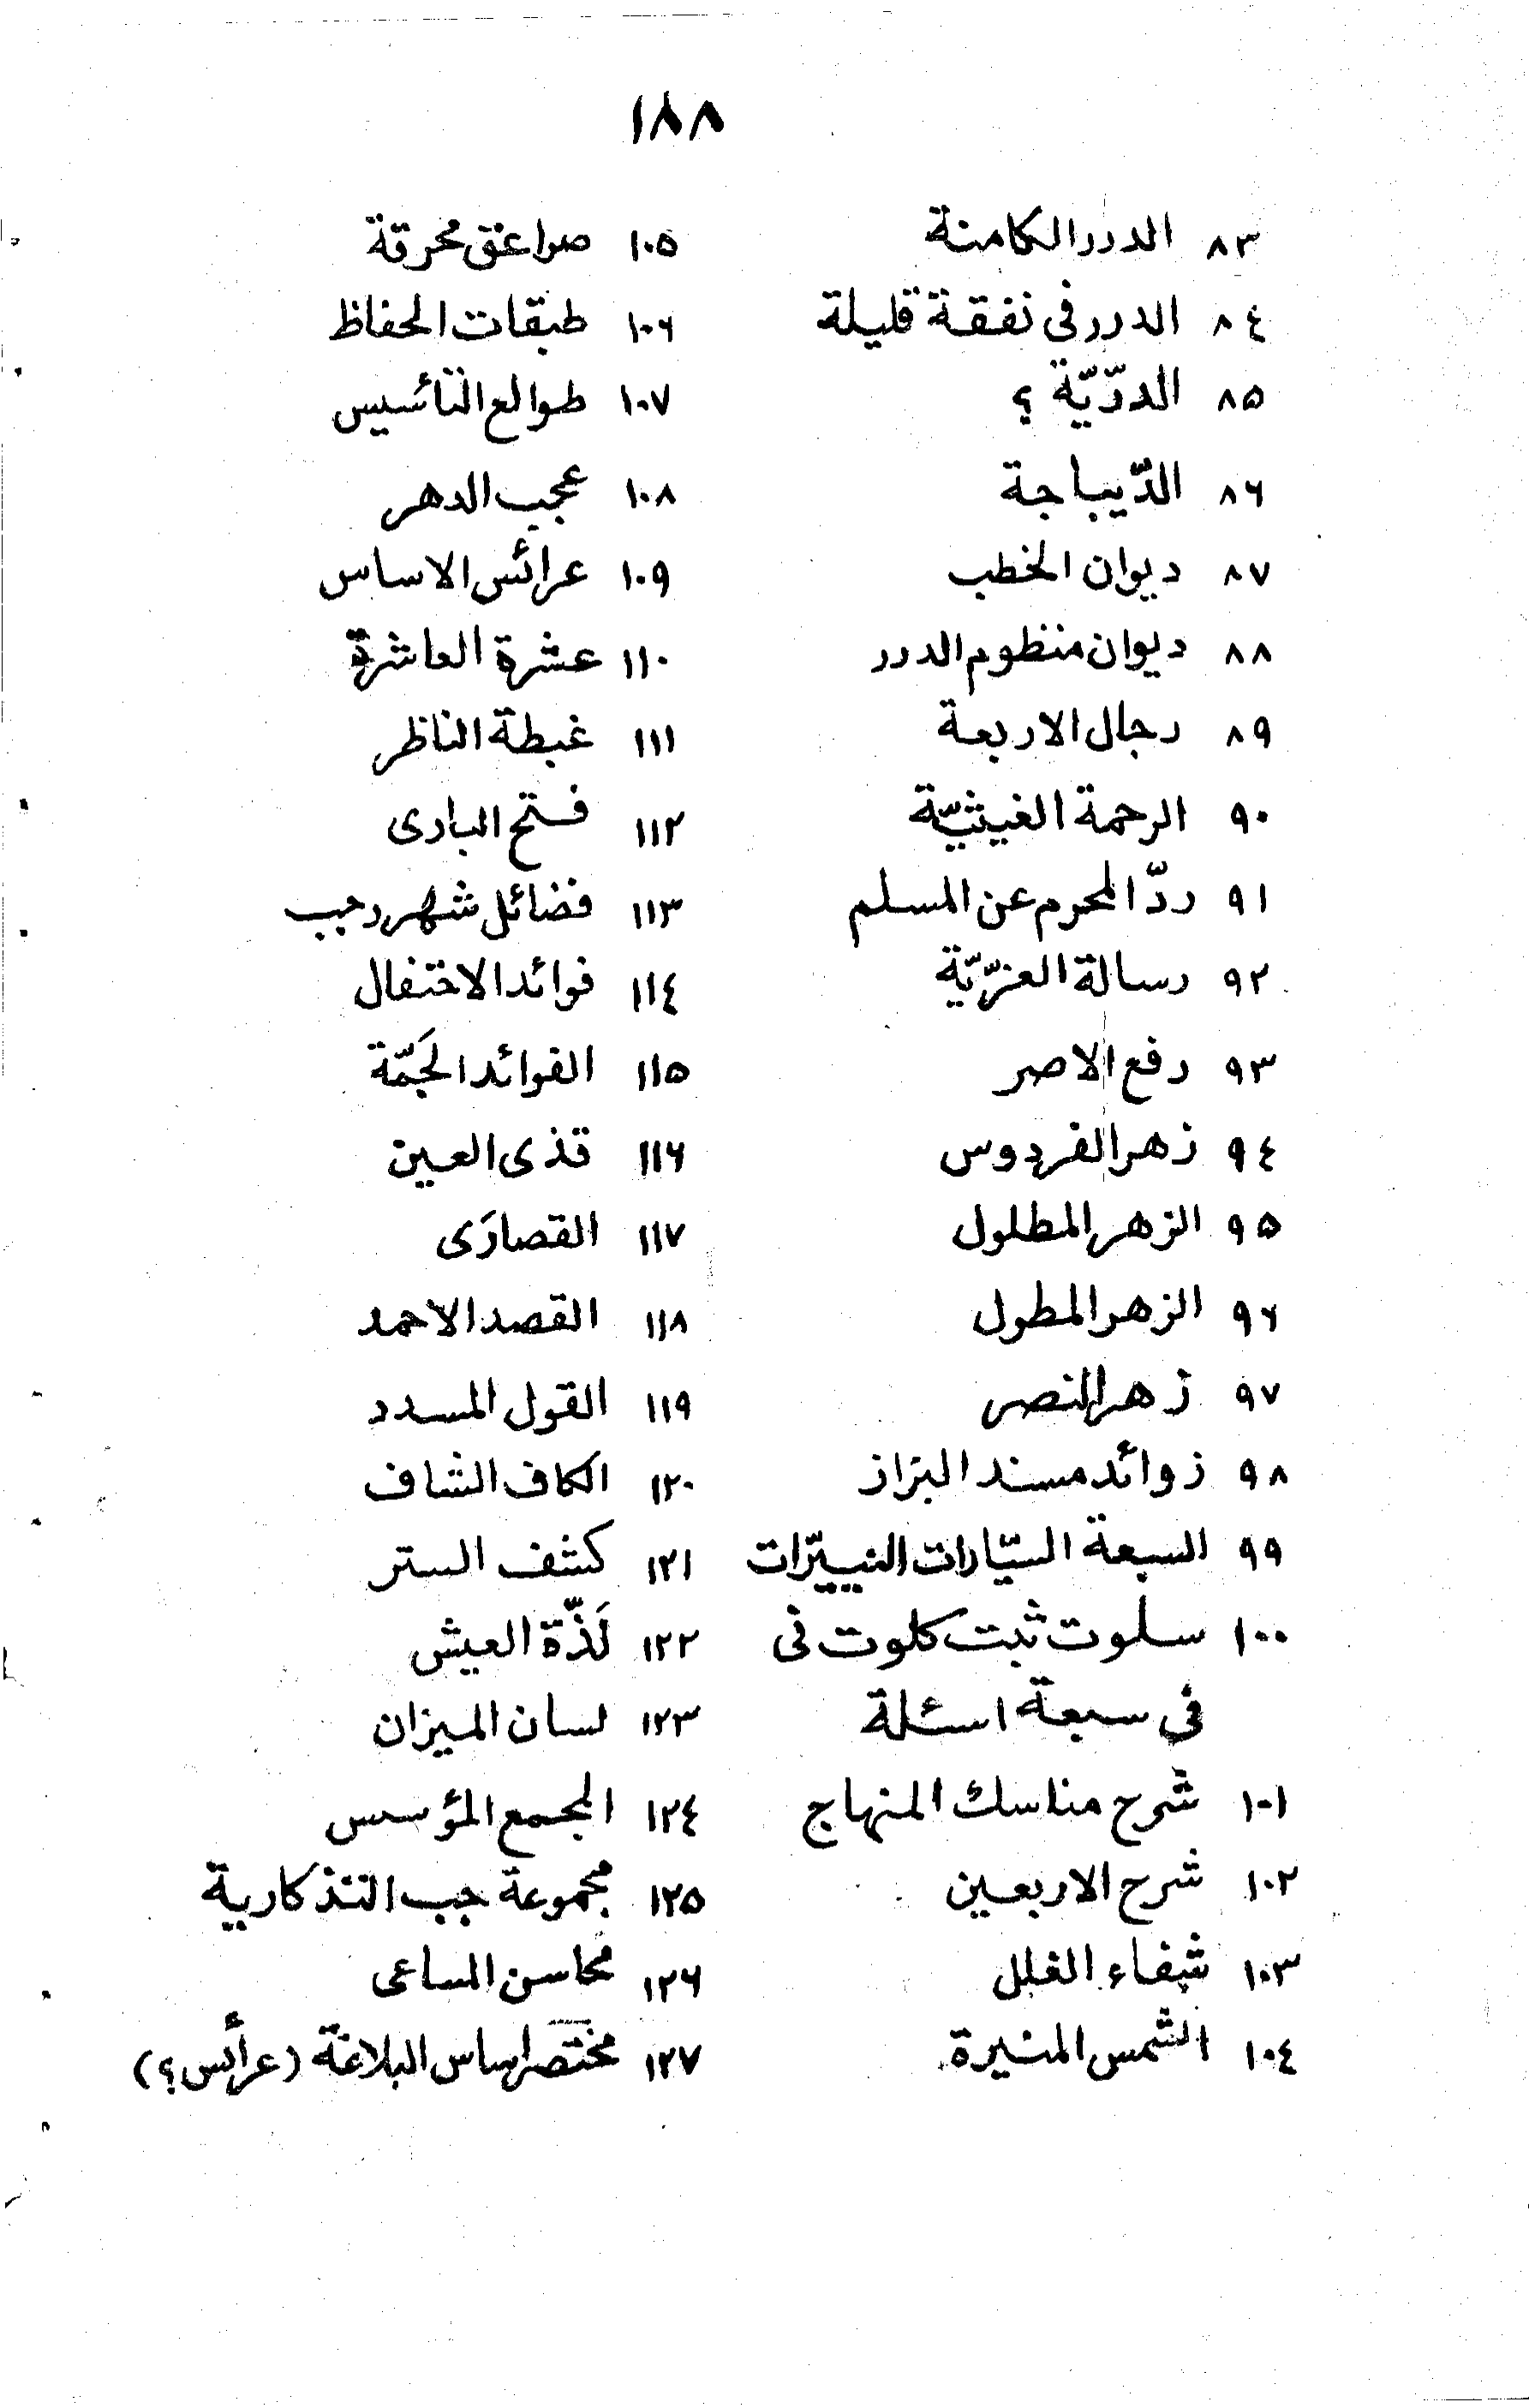 ١٨٨
٨٣ الدرر الكامنة
٨٤ الدرر فى نفقة قليلة
٨٥ الدرّيّة ؟
٨٦ الدّيباجة
٨٧ ديوان الخطب
٨٨ ديوان منظوم الدرر
٨٩ رجال الاربعة
٩٠ الرحمة الغيثيّة
٩١ ردّ المحرم عن المسلم
٩٢ رسالة العزّيّة
٩٣ رفع الاصر
٩٤ زهر الفردوس
٩٥ الزهر المطلول
٩٦ الزهر المطول
٩٧ زهر النصر
٩٨ زوائد مسند البزاز
٩٩ السبعة السيّارات النييّرات
١٠٠ سلوت ثبت كلوت فى
فى سبعة اسئلة
١٠١ شرح مناسك المنهاج
١٠٢ شرح الاربعين
١٠٣ شفاء الغلل
١٠٤ الشمس المنيرة
١٠٥ صواعق محرقة
١٠٦ طبقات الحفاظ
١٠٧ طوالع التأسيس
١٠٨ عجب الدهر
١٠٩ عرائس الاساس
١١٠ عشرة العاشرة
١١١ غبطة الناظر
١١٢ فتح البارى
١١٣ فضائل شهر رجب
١١٤ فوائد الاختفال
١١٥ الفوائد الجَمّة
١١٦ قذى العين
١١٧ القصارَى
١١٨ القصد الاحمد
١١٩ القول المسدد
١٢٠ الكاف الشاف
١٢١ كشف الستر
١٢٢ لَذّة العيش
١٢٣ لسان الميزان
١٢٤ المجمع المؤسس
١٢٥ مجموعة جب التذكارية
١٢٦ محاسن المساعى
١٢٧ مختصر اساس البلاغة (عرائس ؟)